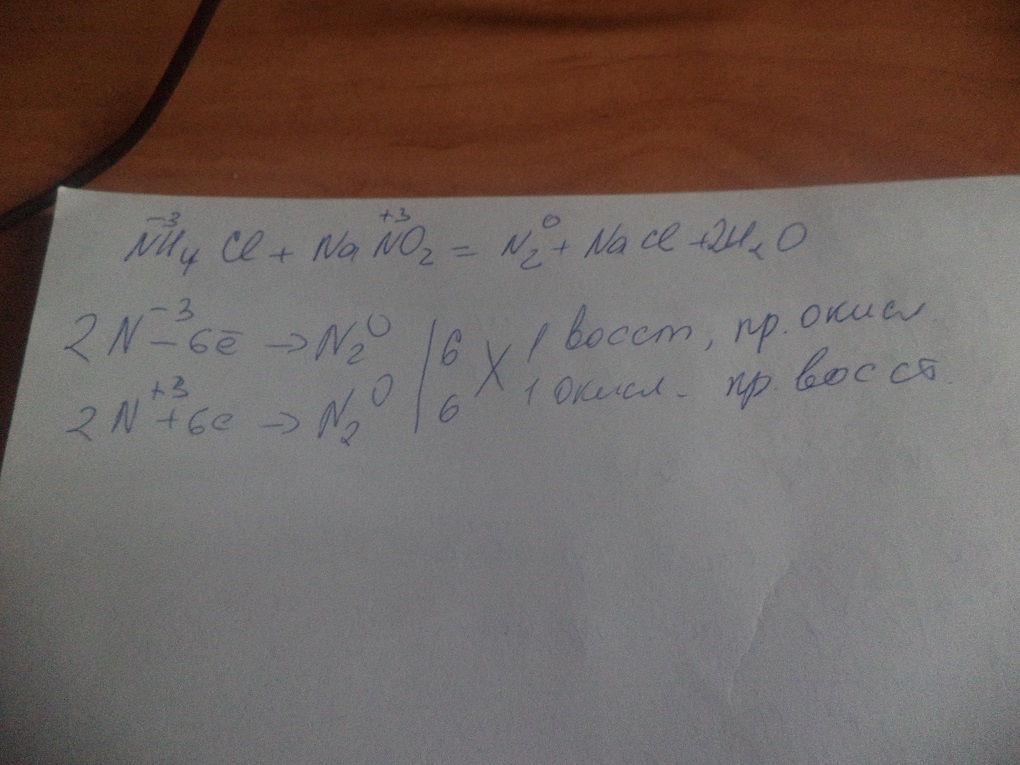 N⁻³H₄Cl + NaN⁺³O₂ = N₂⁰ + NaCl + 2H₂O
2N⁻³ − 6ē → N₂⁰ | 6 X 1 восст, пр. окисл.
2N⁺³ + 6e → N₂⁰ | 6 1 окисл. пр. восст.